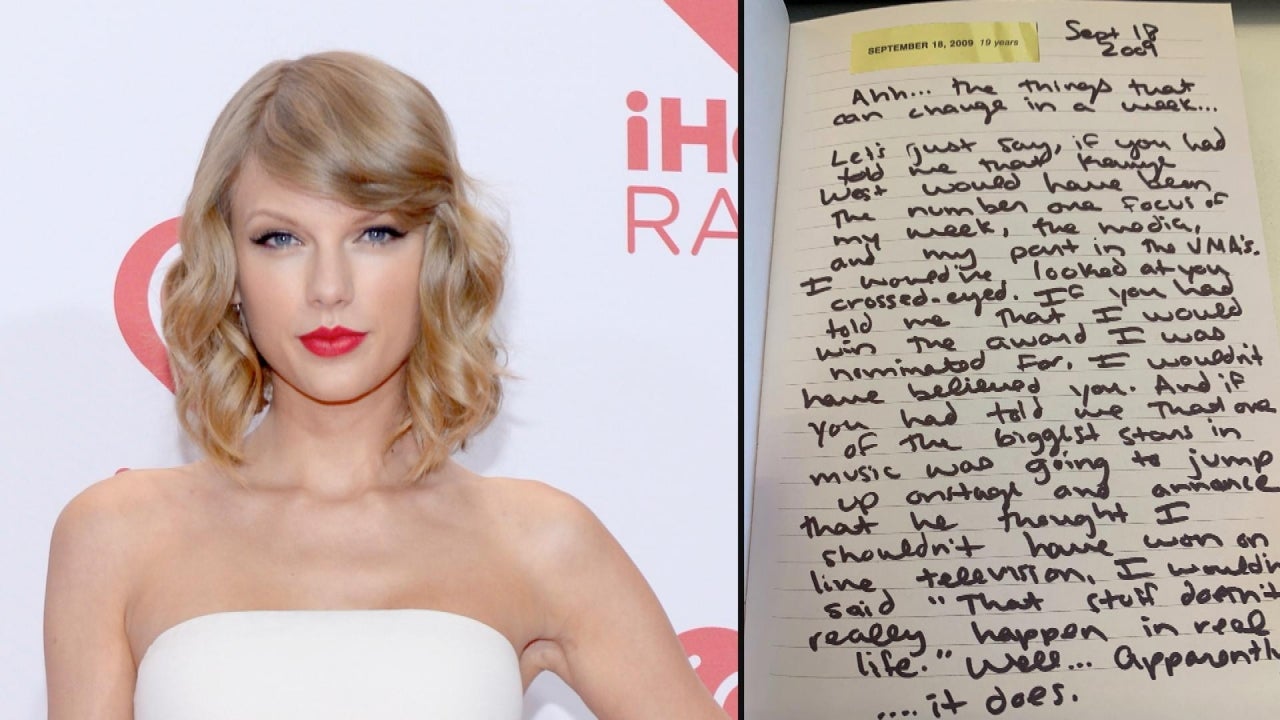 iH
RA
SEPTEMBER 18, 2009 19 years
Sept 18
2009
Ahh... the things that
can change in a week...
Let's just say, if you had
told me that Kanye
West would have been
the number one focus of
my week, the media,
and my part in the VMA's.
I would've looked at you
crossed-eyed. If you had
told me that I would
win the award I was
nominated for, I wouldn't
have believed you. And if
you had told me that one
of the biggest stars in
music was going to jump
up onstage and announce
that he thought I
shouldn't have won on
live television, I would'v
said "That stuff doesn't
really happen in real
life." Well... Apparently
.... it does.